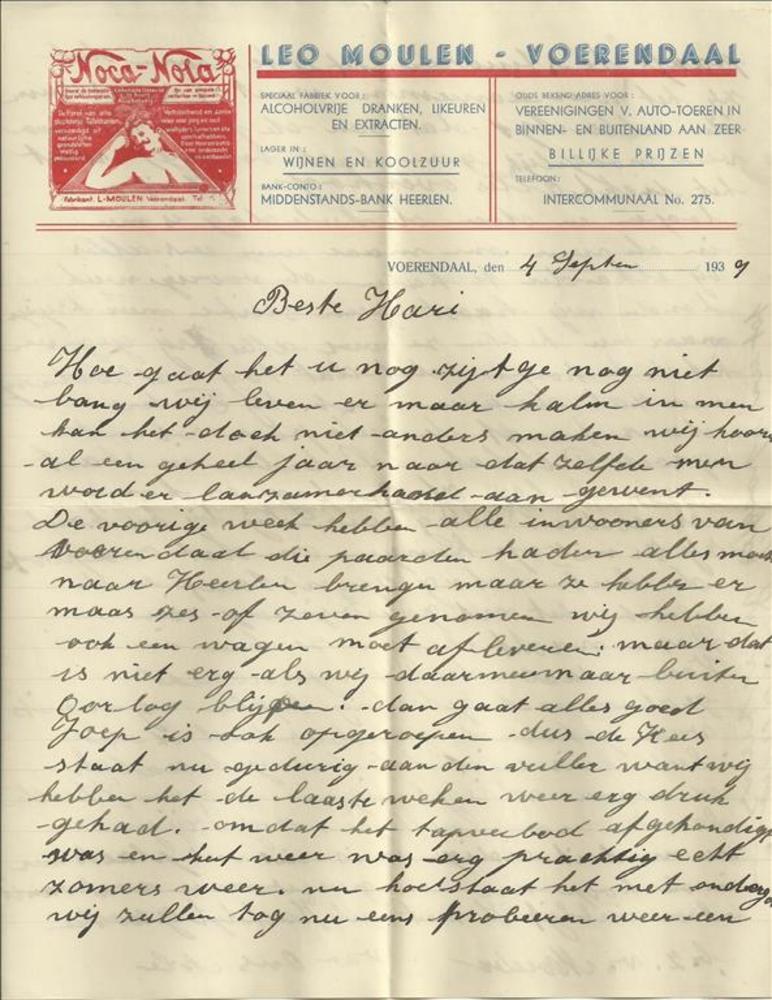 Noca-Nola
Fabrikant L-MOULEN Voerendaal. Tel
LEO MOULEN - VOERENDAAL
SPECIAAL FABRIEK VOOR:
ALCOHOLVRIJE DRANKEN, LIKEUREN
EN EXTRACTEN.
LAGER IN:
WIJNEN EN KOOLZUUR
BANK-CONTO:
MIDDENSTANDS-BANK HEERLEN.
OUDS BEKEND ADRES VOOR:
VEREENIGINGEN V. AUTO-TOEREN IN
BINNEN- EN BUITENLAND AAN ZEER
BILLIJKE PRIJZEN
TELEFOON:
INTERCOMMUNAAL No. 275.
VOERENDAAL, den 4 Septen 1939
Beste Hari
Hoe gaat het u nog zijt ge nog niet
bang wij leven er maar kalm in men
kan het doch niet anders maken wij hoor
al een geheel jaar naar dat zelfde men
word er aan gewent.
De voorige week hebben alle inwooners van
Voerendaal die paarden haden alles moes
naar Heerlen brengen maar ze hebben er
maar zes of zeven genomen wij hebben
ook een wagen moet afleveren: maar dat
is niet erg als wij daarmee maar buiten
Oorlog blijven. dan gaat alles goed
Joep is ook opgeroepen dus de Kees
staat nu gedurig aan den vuller want wij
hebben het de laaste weken weer erg druk
gehad. omdat het tapverbod afgekondigd
was en het weer was erg prachtig echt
zomers weer. nu hoe staat het met
wij zullen tog nu eens probeeren weer een